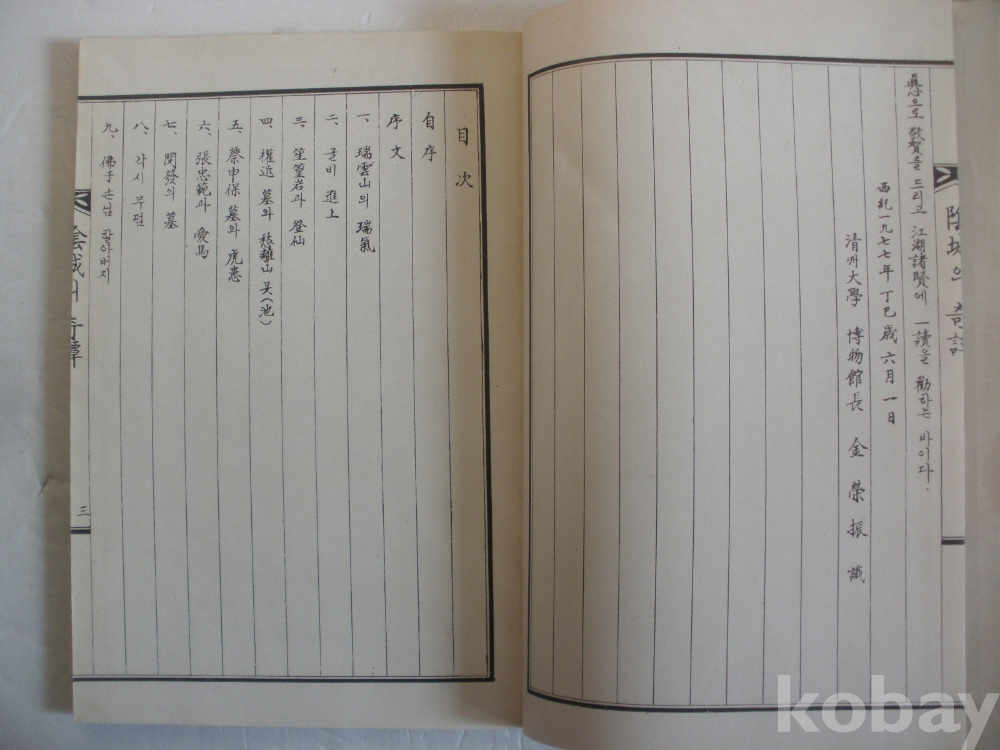 眞心으로 敬賀를 드리고 江湖諸賢에 一讀을 勸하는 바이다.
西紀一九七七年 丁巳歲 六月 一日
清州大學 博物館長 金榮振 識
陰城의 奇譚
目次
自序
序文
一、瑞雲山의 瑞氣
二、굴비 進上
三、笙篁岩과 登仙
四、權近 墓와 秣離山 못(池)
五、蔡申保 墓와 虎患
六、張忠範과 愛馬
七、閔發의 墓
八、각시 무덤
九、佛子 손님 할아버지
陰城의 奇譚
三
kobay